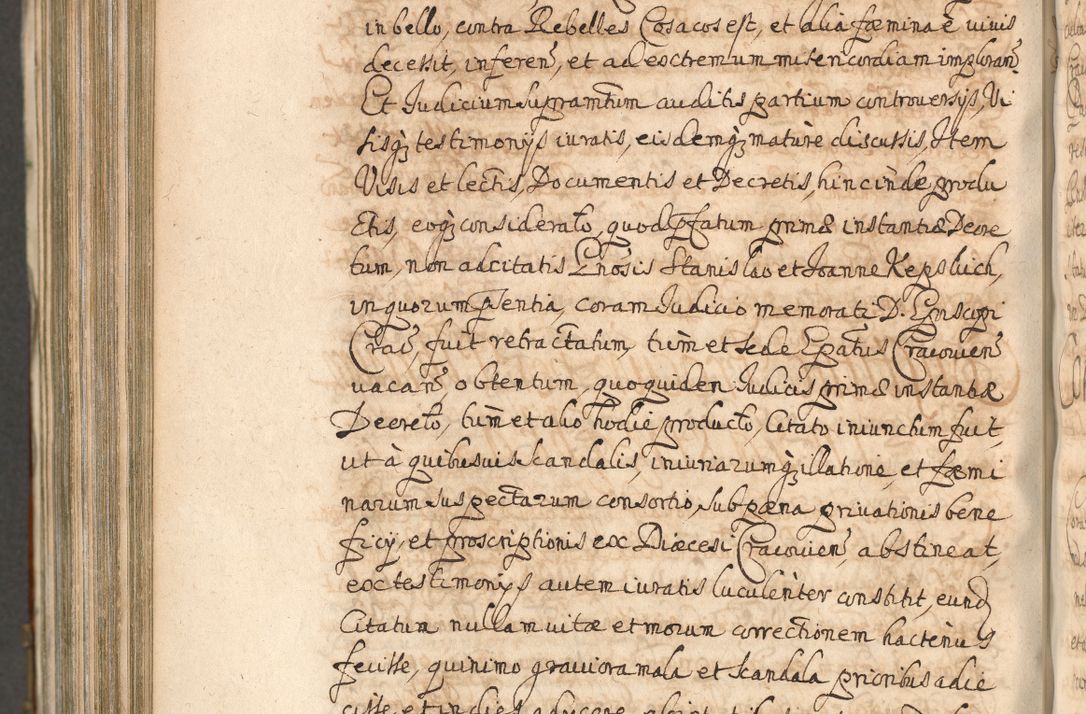 in bello, contra Rebelles Cosacos est, et alia fæmina è vivis
decessit, inferen, et ad extremum misericordiam imploran
Et Judicium supramtum auditis partium controversijs, Vi
sisq testimonijs iuratis, eisdemq maturè discussis, Item
Visis et lectis, Documentis et Decretis, hinc inde produ
ctis, eoq considerato, quod pfatum primæ instantiæ Decre
tum, non adcitatis Gnosis Stanislao et Joanne Kepshich,
in quorum pntia, coram Judicio memorati D. Episcopi
Crac, fuit retractatum, tum et sede Epatus Cracovien
vacan, obtentum, quoquidem Judicis primæ instantiæ
Decreto, tum et alio hodie producto, Citato iniunctum fuit,
ut à quibusuis scandalis, iniuriarumq illatione, et fæmi
narum suspectarum consortio, sub pæna privationis bene
ficij, et proscriptionis ex Diæcesi Cracovien, abstineat,
ex testimonijs autem iuratis luculenter constitit, eund
Citatum nullam vitæ et morum correctionem hactenus
fecisse, quinimo graviora mala et scandala prioribus adie
cisse, et indies